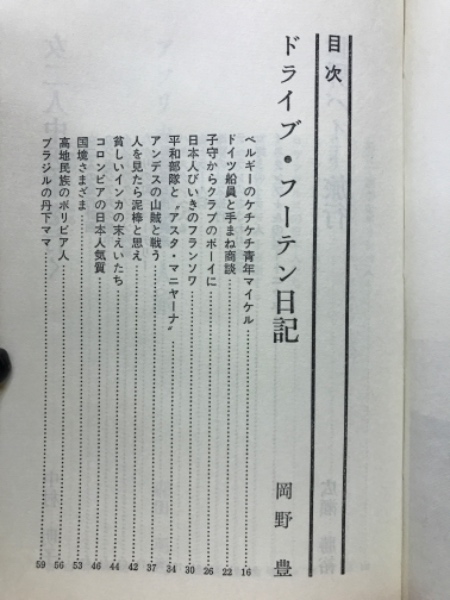 目次
ドライブ・フーテン日記 岡野豊
ベルギーのケチケチ青年マイケル……16
ドイツ船員と手まね商談……22
子守からクラブのボーイに……26
日本人びいきのフランソワ……30
平和部隊と〝アスタ・マニヤーナ〟……34
アンデスの山賊と戦う……37
人を見たら泥棒と思え……42
貧しいインカの末えいたち……44
コロンビアの日本人気質……46
国境さまざま……53
高地民族のボリビア人……56
ブラジルの丹下ママ……59